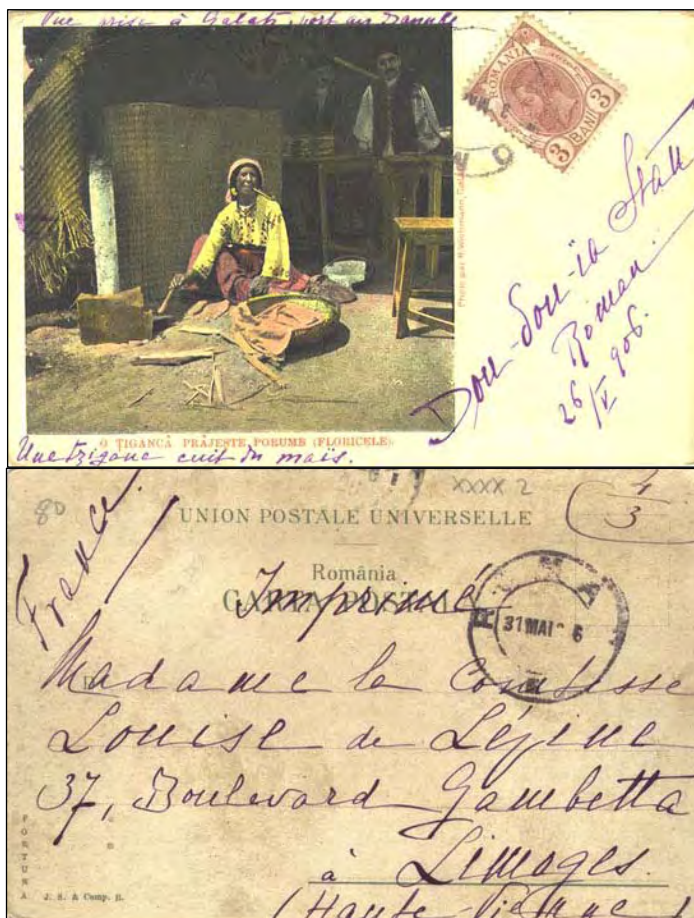 Vue prise à Galatz, port au Danube
ROMANIA
3 BANI 3
Dou-Dou-ïa Stan
Roman
26/V 906.
O ȚIGANCĂ PRĂJEȘTE PORUMB (FLORICELE).
Une tzigane cuit du maïs.
80
XXXX 2
4/3
France.
UNION POSTALE UNIVERSELLE
România
CARTA POSTALA
Imprimé
31 MAI 6
Madame la Comtesse
Louise de Lézine
37, Boulevard Gambetta
à Limoges.
(Haute-Vienne)
FORTUNA
J. S. & Comp. B.